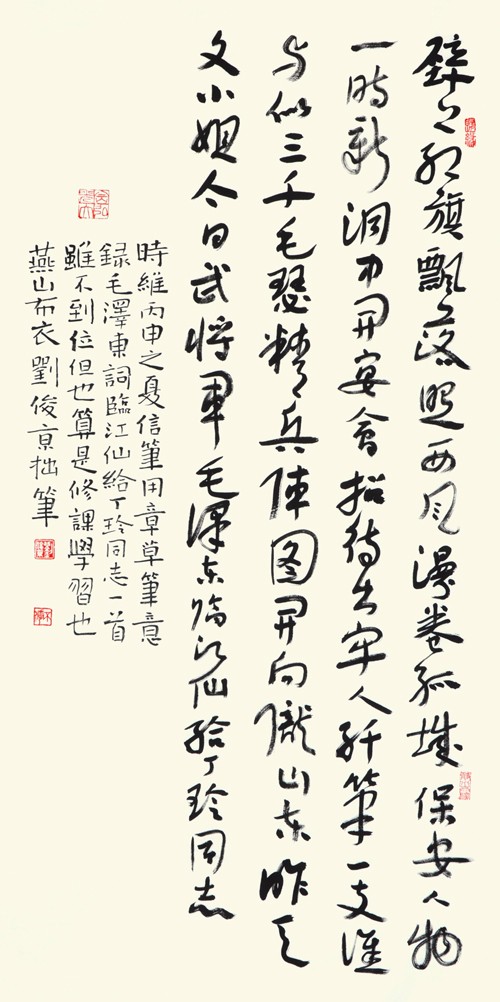 壁上红旗飄落照西风漫卷孤城保安人物
一時新洞中開宴會招待出牢人纤筆一支谁
与似三千毛瑟精兵陣图開向隴山东昨天
文小姐今日武將軍毛澤东臨江仙給丁玲同志
時維丙申之夏信筆用章草筆意
録毛澤東詞臨江仙給丁玲同志一首
雖不到位但也算是修課學習也
燕山布衣劉俊京拙筆